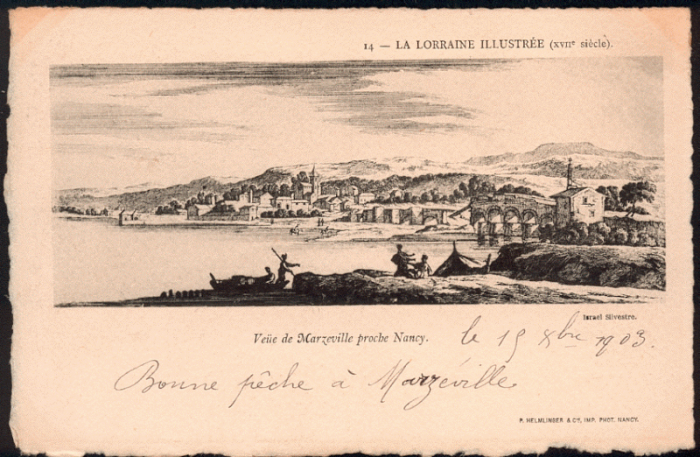 14 — LA LORRAINE ILLUSTRÉE (XVIIe siècle).
Israel Silvestre.
Veüe de Marzeville proche Nancy.
le 15 Xbre 1903.
Bonne pêche à Marzéville
P. HELMLINGER & Cie, IMP. PHOT. NANCY.